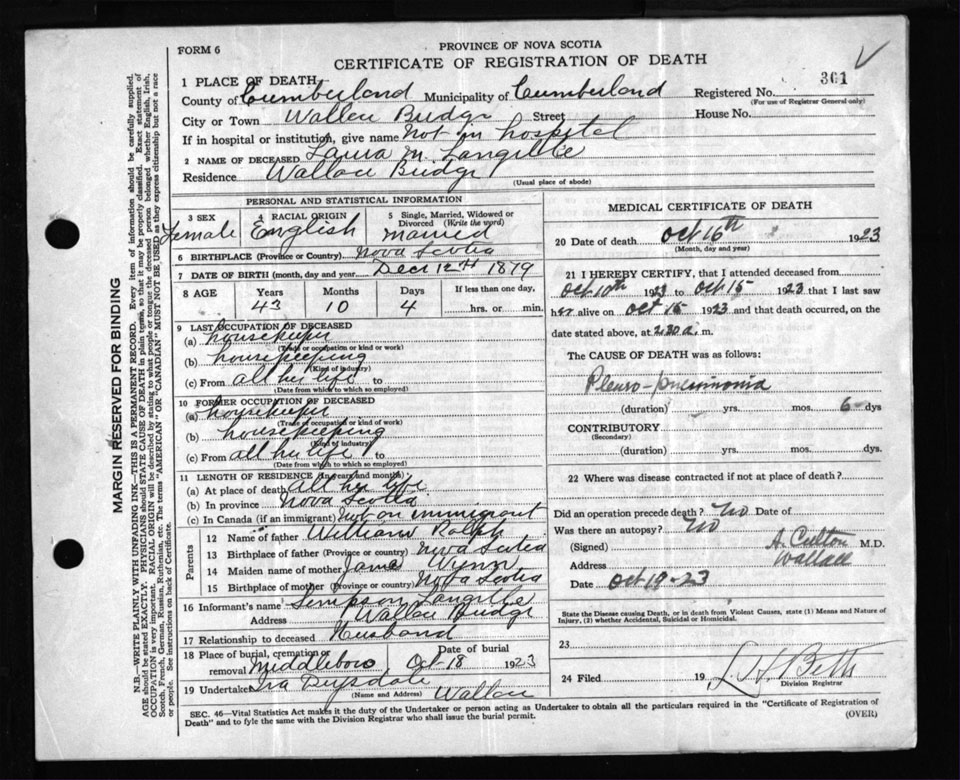 FORM 6
PROVINCE OF NOVA SCOTIA
CERTIFICATE OF REGISTRATION OF DEATH
361
MARGIN RESERVED FOR BINDING
N.B.—WRITE PLAINLY WITH UNFADING INK—THIS IS A PERMANENT RECORD. Every item of information should be carefully supplied.
AGE should be stated EXACTLY. PHYSICIANS should STATE CAUSE OF DEATH in plain terms, so that it may be properly classified. Exact statement of
OCCUPATION is very important. RACIAL ORIGIN will be described by stating to what people or tongue the deceased person belonged whether English, Irish,
Scotch, French, German, Russian, Ruthenian, etc. The terms "AMERICAN" OR "CANADIAN" MUST NOT BE USED as they express citizenship but not a race
or people. See instructions on back of Certificate.
1 PLACE OF DEATH
County of Cumberland Municipality of Cumberland Registered No.
(For use of Registrar General only)
City or Town Wallace Bridge Street House No.
If in hospital or institution, give name Not in hospital
2 NAME OF DECEASED Laura M. Langille
Residence Wallace Bridge
(Usual place of abode)
PERSONAL AND STATISTICAL INFORMATION
3 SEX
Female
4 RACIAL ORIGIN
English
5 Single, Married, Widowed or Divorced (Write the word)
Married
6 BIRTHPLACE (Province or Country) Nova Scotia
7 DATE OF BIRTH (month, day and year) Dec 12th 1879
8 AGE Years Months Days If less than one day,
43 10 4 hrs. or min.
9 LAST OCCUPATION OF DECEASED
(a) housekeeper
(Trade or occupation or kind of work)
(b) housekeeping
(Kind of industry)
(c) From all her life to
(Date from which to which so employed)
10 FORMER OCCUPATION OF DECEASED
(a) housekeeper
(Trade or occupation or kind of work)
(b) housekeeping
(Kind of industry)
(c) From all her life to
(Date from which to which so employed)
11 LENGTH OF RESIDENCE (in years and months)
(a) At place of death all her life
(b) In province Nova Scotia
(c) In Canada (if an immigrant) Not an immigrant
Parents
12 Name of father William Ralph
13 Birthplace of father (Province or country) Nova Scotia
14 Maiden name of mother Jane Wynn
15 Birthplace of mother (Province or country) Nova Scotia
16 Informant's name Simpson Langille
Address Wallace Bridge
17 Relationship to deceased Husband
18 Place of burial, cremation or removal Middleboro Date of burial Oct 18 1923
19 Undertaker Ira Drysdale Wallace
(Name and Address)
MEDICAL CERTIFICATE OF DEATH
20 Date of death Oct 16th 1923
(Month, day and year)
21 I HEREBY CERTIFY, that I attended deceased from
Oct 10th 1923 to Oct 15 1923 that I last saw
her alive on Oct 15 1923 and that death occurred, on the
date stated above, at 2.30 a. m.
The CAUSE OF DEATH was as follows:
Pleuro-pneumonia
(duration) yrs. mos. 6 dys
CONTRIBUTORY
(Secondary)
(duration) yrs. mos. dys.
22 Where was disease contracted if not at place of death?
Did an operation precede death? No Date of
Was there an autopsy? No
(Signed) M.D.
Address Wallace
Date Oct 18-23
State the Disease causing Death, or in death from Violent Causes, state (1) Means and Nature of
Injury, (2) whether Accidental, Suicidal or Homicidal.
23
24 Filed 19 Betts
Division Registrar
SEC. 46—Vital Statistics Act makes it the duty of the Undertaker or person acting as Undertaker to obtain all the particulars required in the "Certificate of Registration of
Death" and to fyle the same with the Division Registrar who shall issue the burial permit.
(OVER)